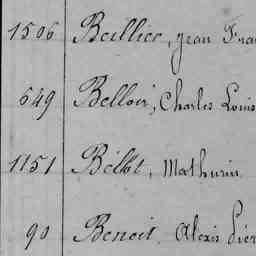 1506 Bellier, Jean Fra
549 Belloir, Charles Louis
1151 Bélot, Mathurin
90 Benoit, Alexis Pier